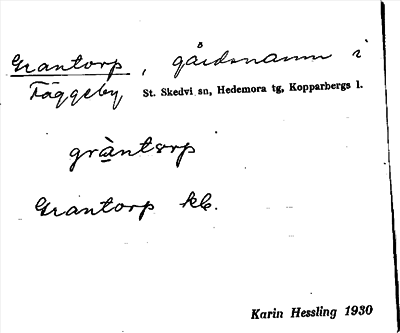 Grantorp, gårdsnamn i
Fäggeby St. Skedvi sn, Hedemora tg, Kopparbergs l.
gràntorp
Grantorp kb.
Karin Hessling 1930